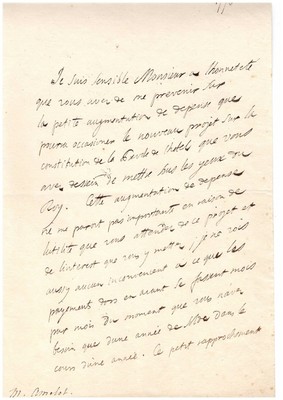 Je suis sensible Monsieur a l'honnetete
que vous avez de me prevenir sur
la petite augmentation de depense que
pourra occasioner le nouveau projet sur la
constitution de la Garde de l'hotel que vous
avez dessein de mettre sous les yeux du
Roy. Cette augmentation de depense
ne me paroit pas importante en raison de
l'utilité que vous attendez de ce projet et
de l'interest que vous y mettez, je ne vois
aussy aucun inconvenient a ce que les
payements dors en avant se fassent mois
par mois du moment que vous n'avez
besoin que d'une année de dans le
cours d'une année. Ce petit rapprochement
M.